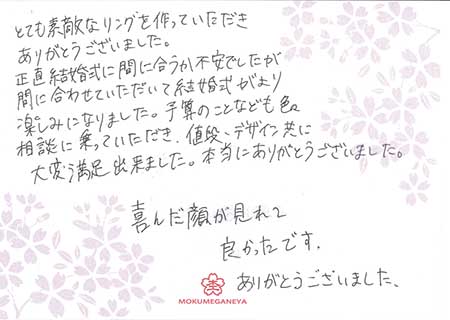 とても素敵なリングを作っていただき
ありがとうございました。
正直結婚式に間に合うか不安でしたが
間に合わせていただいて結婚式がより
楽しみになりました。予算のことなども色々
相談に乗っていただき、値段、デザイン共に
大変満足出来ました。本当にありがとうございました。
喜んだ顔が見れて
良かったです.
ありがとうございました、
MOKUMEGANEYA